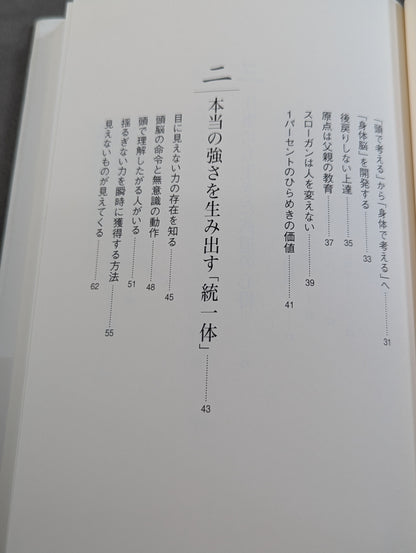 「頭で考える」から「身体で考える」へ……31
「身体脳」を開発する……33
後戻りしない上達……35
原点は父親の教育……37
スローガンは人を変えない……39
1パーセントのひらめきの価値……41
二 本当の強さを生み出す「統一体」……43
目に見えない力の存在を知る……45
頭脳の命令と無意識の動作……48
頭で理解したがる人がいる……51
揺るぎない力を瞬時に獲得する方法……55
見えないものが見えてくる……62